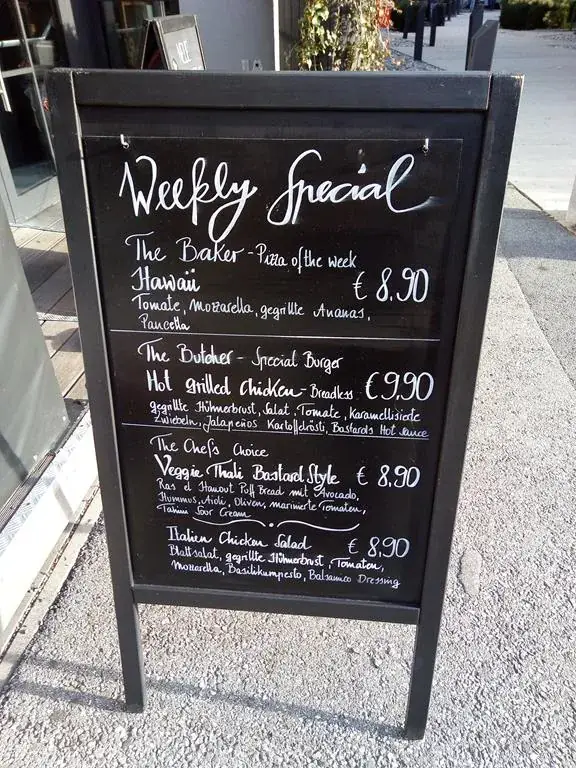 Weekly Special
The Baker - Pizza of the week
Hawaii € 8.90
Tomate, Mozzarella, gegrillte Ananas,
Pancetta
The Butcher - Special Burger
Hot grilled chicken - Breadless € 9.90
gegrillte Hühnerbrust, Salat, Tomate, Karamellisierte
Zwiebeln, Jalapeños Kartoffelrösti, Bastards Hot Sauce
The Chefs Choice
Veggie Thali Bastard Style € 8,90
Ras el Hanout Puff Bread mit Avocado,
Hummus, Aioli, Oliven, marinierte Tomaten,
Tahini Sour Cream
Italien Chicken Salad € 8,90
Blattsalat, gegrillte Hühnerbrust, Tomaten,
Mozzarella, Basilikumpesto, Balsamico Dressing